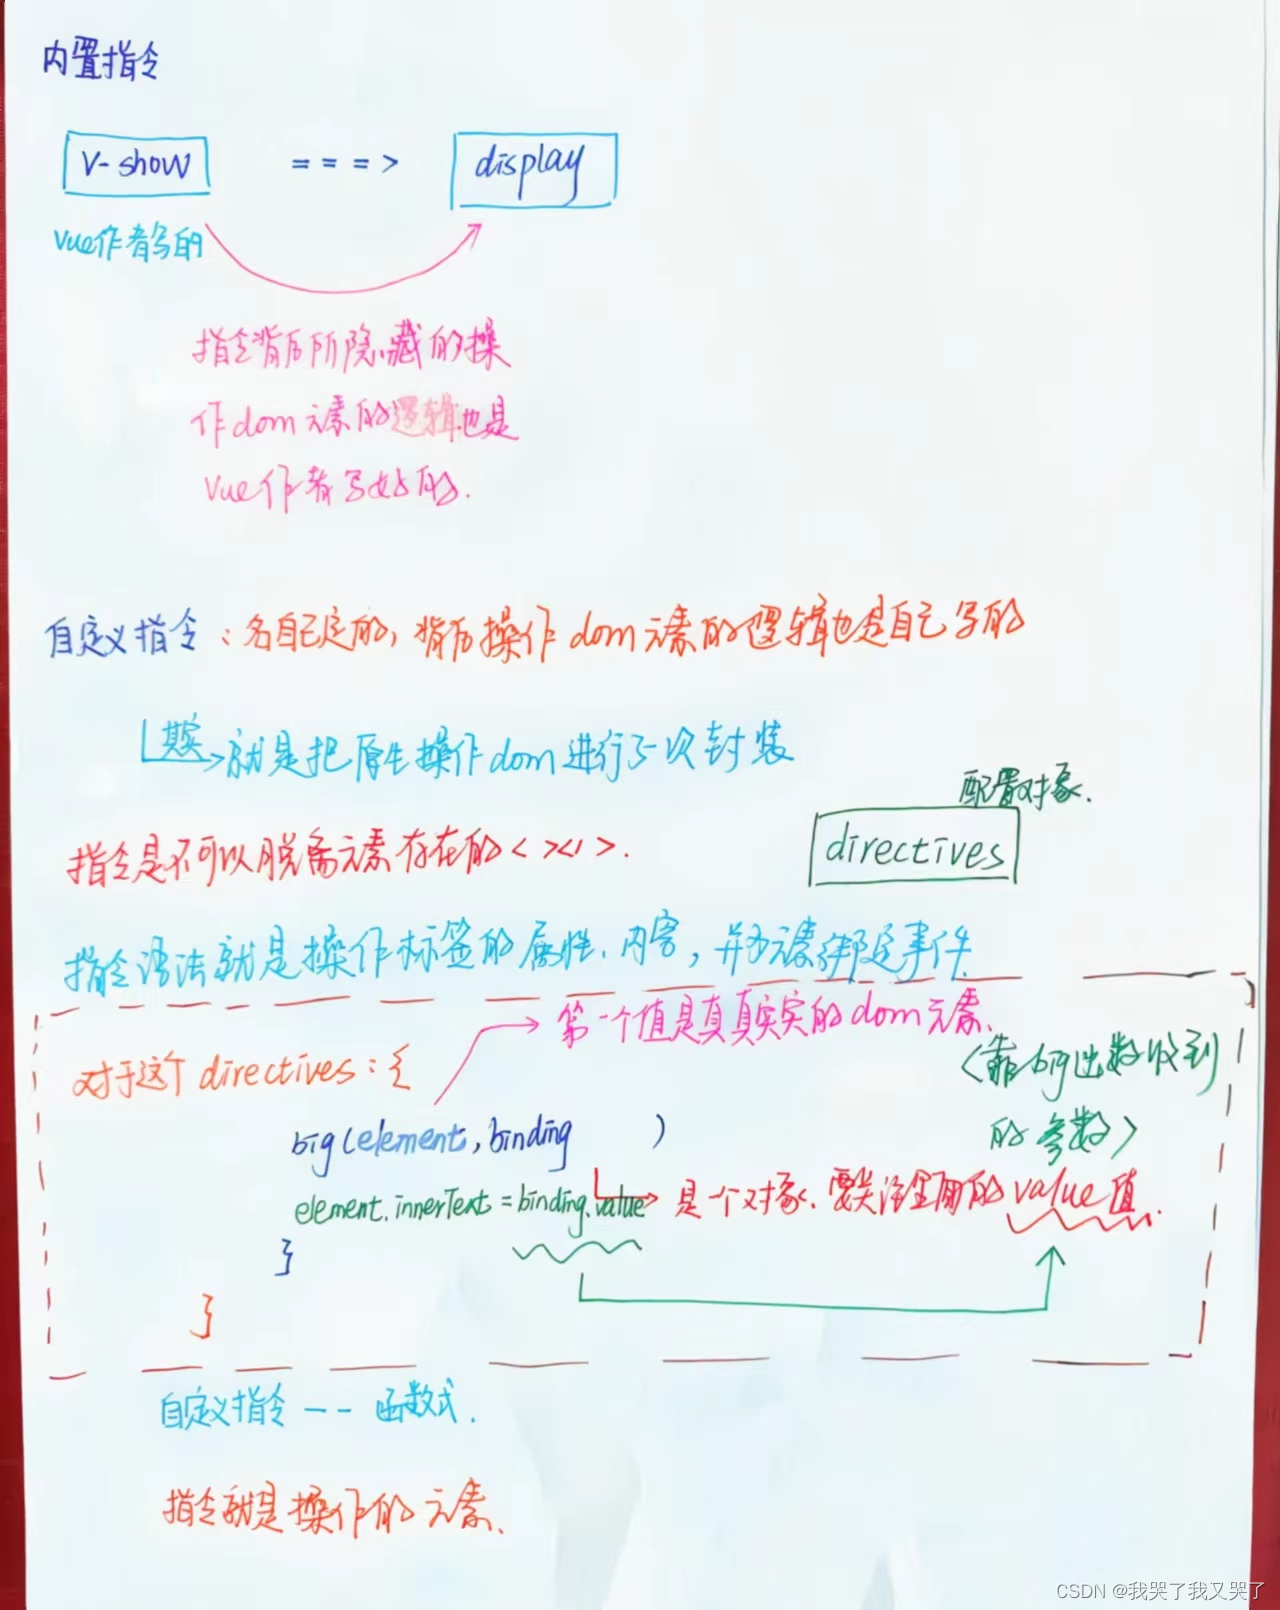 内置指令
v-show ===> display
vue作者写的
指令背后所隐藏的操
作dom元素的逻辑也是
vue作者写好的.
自定义指令：名自己定的，背后操作dom元素的逻辑也是自己写的
其实就是把原生操作dom进行了一次封装
配置对象.
指令是不可以脱离元素存在的<></>.
directives
指令语法就是操作标签的属性、内容，并为元素绑定事件
第一个值是真真实实的dom元素.
对于这个directives：{
<靠big函数收到
的参数>
big(element,binding )
element.innerText=binding.value 是一个对象.要关注里面的value值.
}
}
自定义指令--函数式.
指令就是操作的元素.
CSDN @我哭了我又哭了